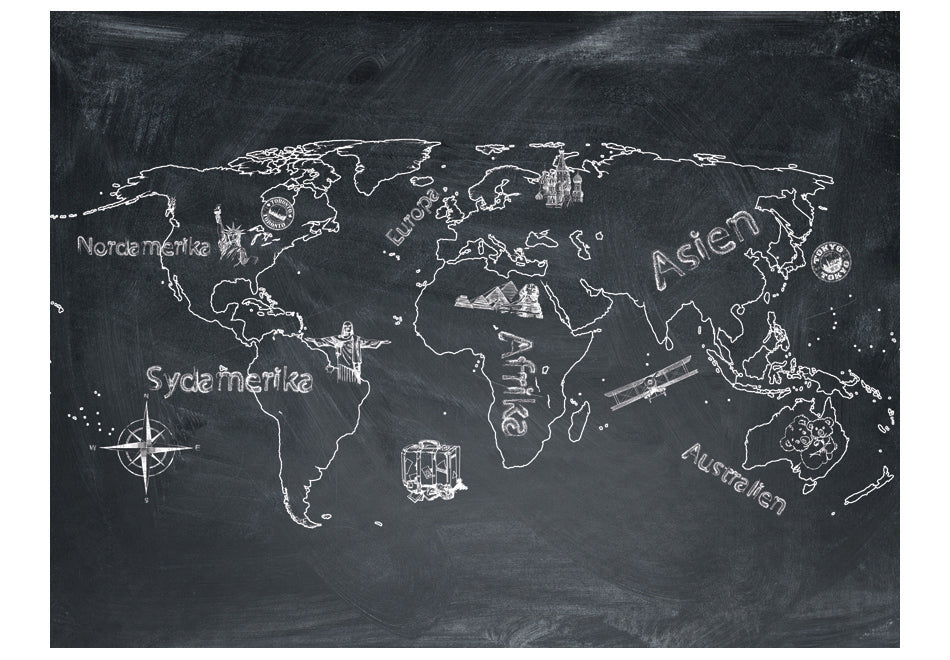 TORONTO
TORONTO
Europa
Nordamerika
Asien
TOKYO
TOKYO
Afrika
Sydamerika
N
W
E
S
Australien